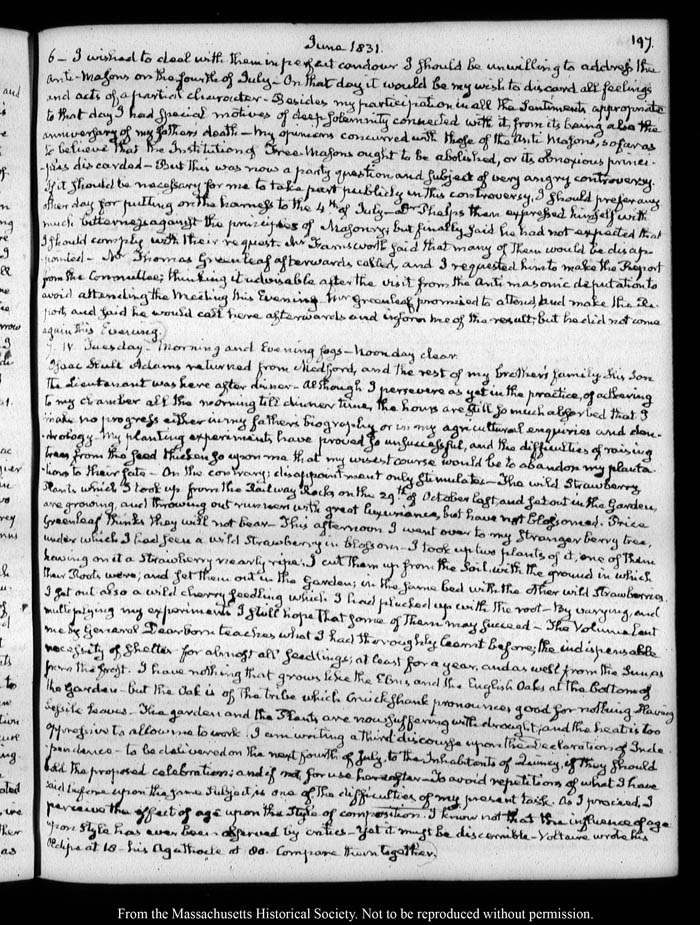 June 1831.
197.
6 – I wished to deal with them in perfect candour I should be unwilling to address the
Anti-Masons on the fourth of July – On that day it would be my wish to discard all feelings
and acts of a partial character – Besides my participation in all the Sentiments appropriate
to that day I had Special motives of deep Solemnity connected with it, from its being also the
anniversary of my father's death – My opinions concurred with those of the Anti Masons, so far as
to believe that the Institution of Free-Masons ought to be abolished, or its obnoxious princi-
-ples discarded – But this was now a party question and subject of very angry controversy.
If it should be necessary for me to take part publicly in this controversy, I should prefer any
other day for putting on the harness to the 4th of July – Dr Phelps then expressed himself with
much bitterness against the principles of Masonry; but finally said he had not expected that
I should comply with their request. Mr Farnsworth said that many of them would be disap-
pointed – Mr Thomas Greenleaf afterwards called, and I requested him to make the Report
from the Committee; thinking it advisable after the visit from the Anti masonic deputation to
avoid attending the Meeting this Evening. Mr Greenleaf promised to attend, and make the Re-
port, and said he would call here afterwards and inform me of the result; but he did not come
again this Evening.
7. IV. Tuesday – Morning and Evening fogs – Noon day clear.
Isaac Hull Adams returned from Medford, and the rest of my brother's family. His Son
the Lieutenant was here after dinner – Although I persevere as yet in the practice, of adhering
to my chamber all the morning till dinner time, the hours are still so much absorbed that I
make no progress either in my father's biography or in my agricultural enquiries and den-
-drology – My planting experiments have proved so unsuccessful, and the difficulties of raising
trees from the seed thicken so upon me that my wisest course would be to abandon my planta-
-tions to their fate – On the contrary; disappointment only stimulates – The wild Strawberry
Plants which I took up from the Railway Rocks on the 29th of October last, and set out in the Garden,
are growing, and throwing out runners with great luxuriance, but have not blossomed. Price
Greenleaf thinks they will not bear – This afternoon I went over to my Stranger berry tree,
under which I had seen a wild Strawberry in blossom – I took up two plants of it; one of them
having on it a Strawberry nearly ripe; I cut them up from the Soil, with the ground in which
their Roots were; and set them out in the Garden; in the same bed with the other wild Strawberries.
I set out also a wild cherry seedling which I had plucked up with the root – By varying, and
multiplying my experiments I still hope that some of them may succeed – The Volume lent
me by General Dearborn teaches what I had thoroughly learnt before; the indispensable
necessity of Shelter for almost all seedlings; at least for a year, and as well from the Sun as
from the frost. I have nothing that grows like the Elms, and the English Oaks at the bottom of
the Garden – but the Oak is of the tribe which Cruickshank pronounces good for nothing. Having
Sessile leaves – The garden and the Plants are now suffering with drought; and the heat is too
oppressive to allow me to work. I am writing a third discourse upon the Declaration of Inde
-pendence – to be delivered on the next fourth of July, to the Inhabitants of Quincy, if they should
hold the proposed celebration; and if not for use hereafter – To avoid repetitions of what I have
said before upon the same Subject, is one of the difficulties of my present task. As I proceed, I
perceive the effect of age upon the Style of composition. I know not that the influence of age
upon Style has ever been observed by critics – Yet it must be discernible – Voltaire wrote his
Œdipe at 18 – his Agathocle at 80. Compare them together.
From the Massachusetts Historical Society. Not to be reproduced without permission.